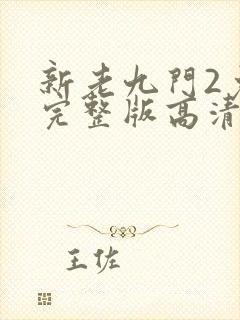 新老九門2
完整版高清
王佐